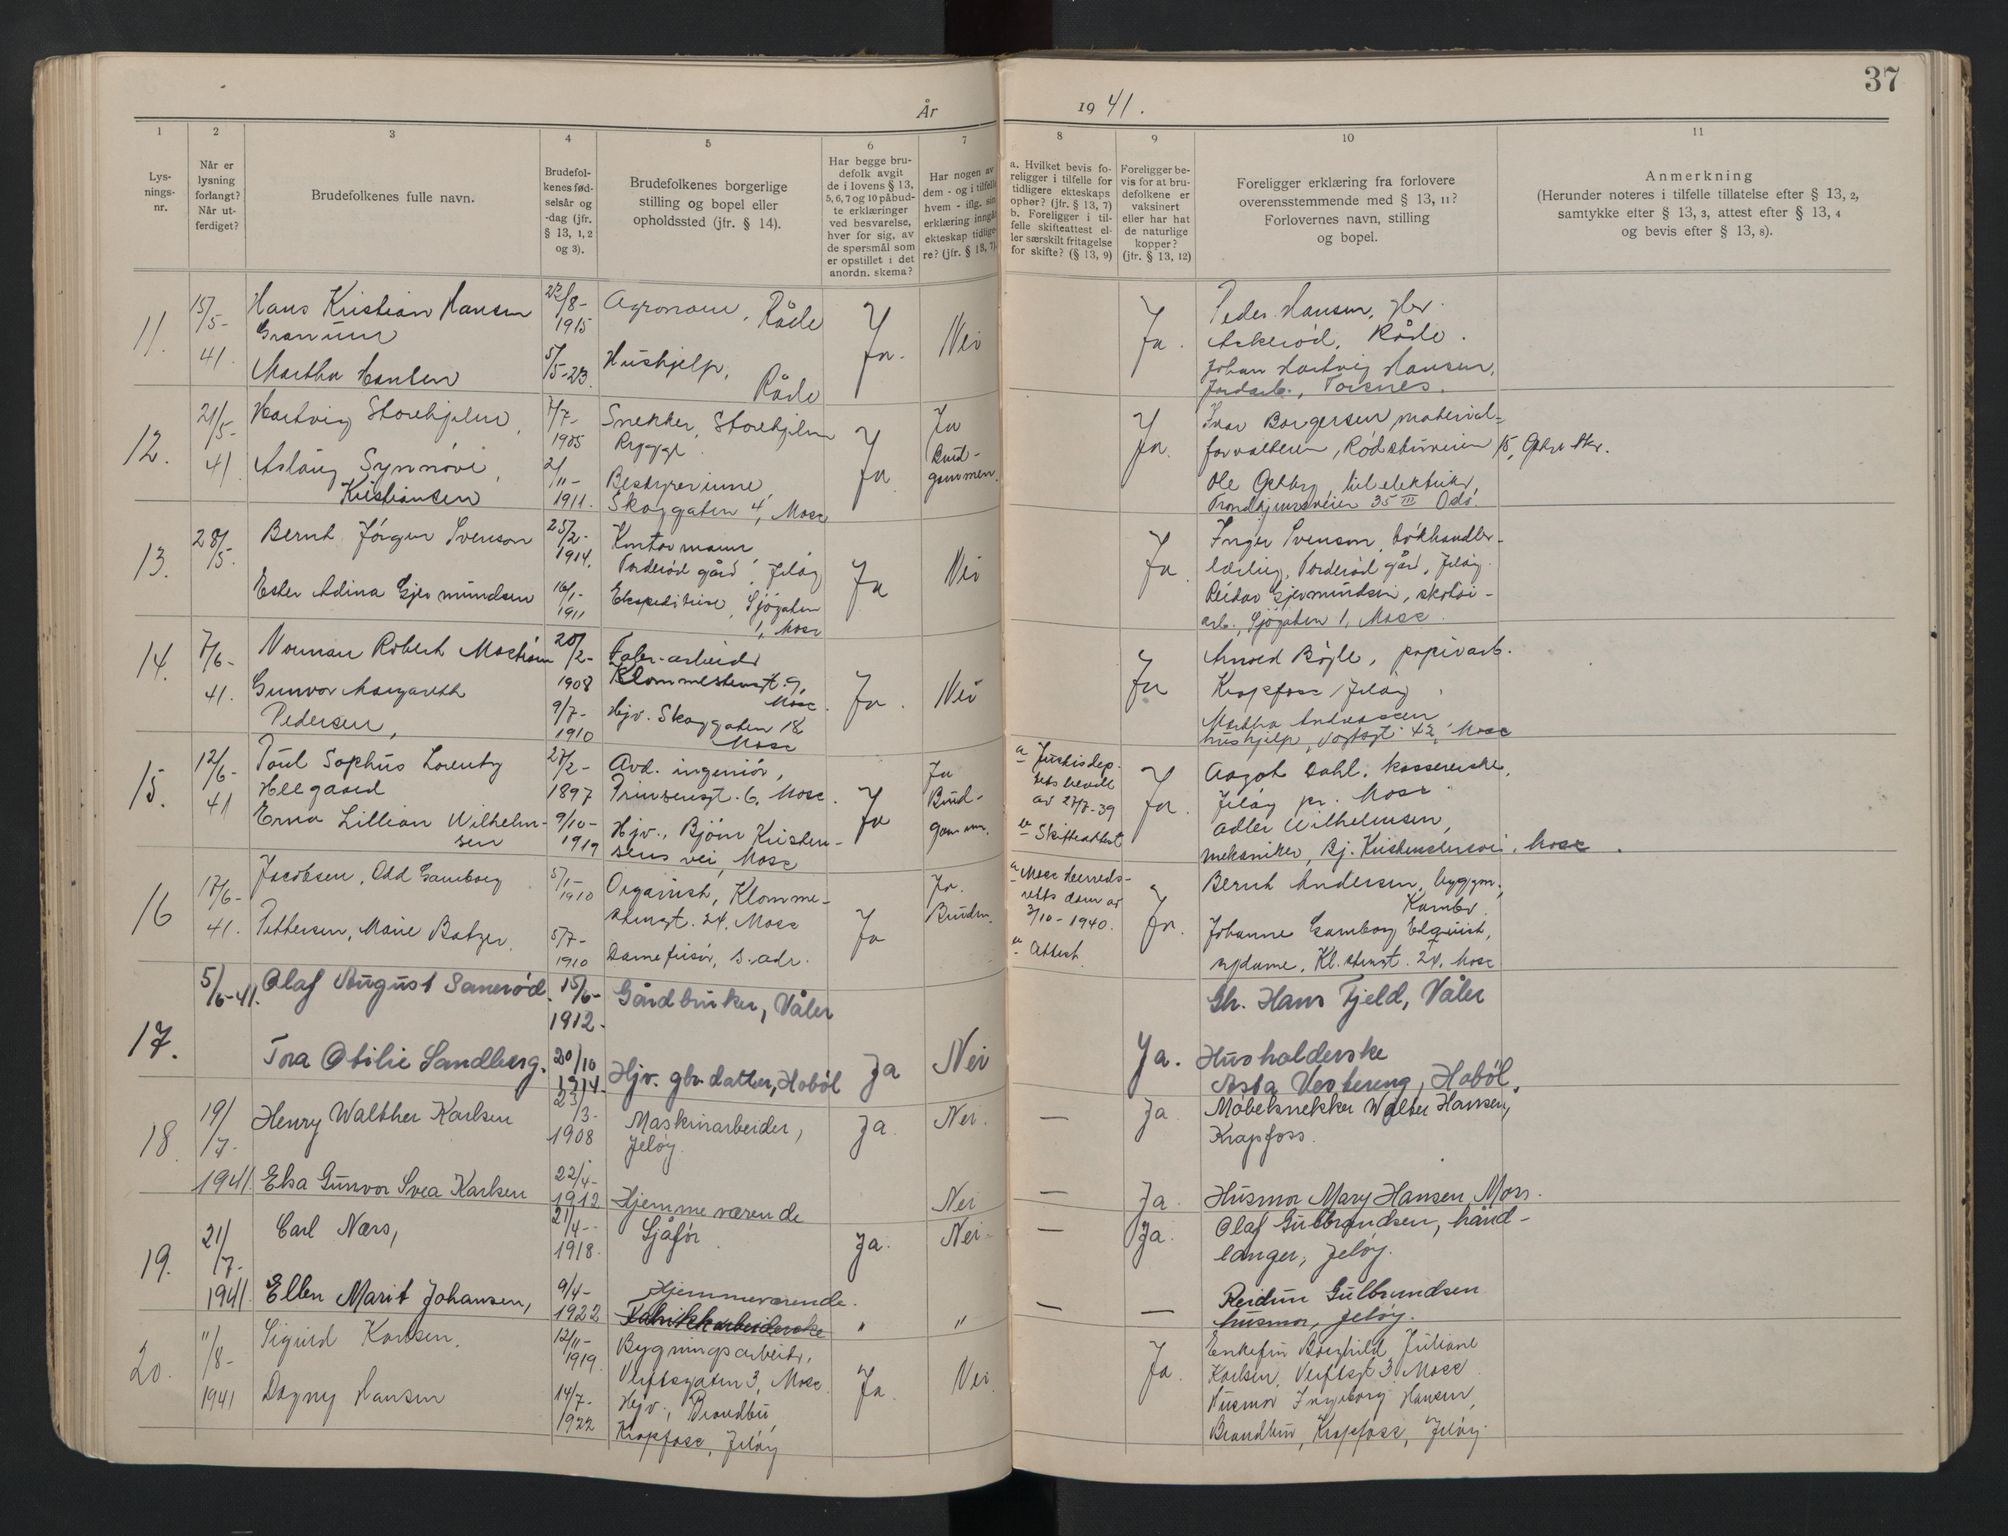 37
År
19 41.
1
2
3
4
5
6
7
8
9
10
11
Lys-
nings-
nr.
Når er
lysning
forlangt?
Når ut-
ferdiget?
Brudefolkenes fulle navn.
Brudefol-
kenes fød-
selsår og
-dag (jfr.
§ 13, 1, 2
og 3).
Brudefolkenes borgerlige
stilling og bopel eller
opholdssted (jfr. § 14).
Har begge bru-
defolk avgit
de i lovens § 13,
5, 6, 7 og 10 påbud-
te erklæringer
ved besvarelse,
hver for sig, av
de spørsmål som
er opstillet i det
anordn. skema?
Har nogen av
dem - og i tilfelle
hvem - iflg. sin
erklæring inngått
ekteskap tidlige-
re? (jfr. § 13, 7).
a. Hvilket bevis fo-
religger i tilfelle for
tidligere ekteskaps
ophør? (jfr. § 13, 7)
b. Foreligger i til-
felle skifteattest el-
ler særskilt fritagelse
for skifte? (§ 13, 9)
Foreligger be-
vis for at bru-
defolkene er
vaksinert
eller har hat
de naturlige
kopper?
(jfr. § 13, 12)
Foreligger erklæring fra forlovere
overensstemmende med § 13, 11?
Forlovernes navn, stilling
og bopel.
Anmerkning
(Herunder noteres i tilfelle tillatelse efter § 13, 2,
samtykke efter § 13, 3, attest efter § 13, 4
og bevis efter § 13, 8).
11.
15/5-
41.
Hans Kristian Hansen
Granum
Martha Hansen
22/8-
1915
5/5-23.
Agronom, Råde
Hushjelp,
Råde
Ja.
Nei
Ja.
Peder Hansen,
Askerød, Råde.
Johan Hartvig Hansen,
Jordarb., Torsnes.
12.
21/5-
41
Hartvig Storehjelm,
Aslaug Synnøve
Kristiansen
7/7-
1905
2/11-
1911.
Snekker, Storehjelm
Rygge.
Bestyrerinne,
Skoggaten 4, Moss
Ja
Ja
Brud-
gommen.
Ja.
Ivar Borgersen material-
forvalteren, Rødsturveien 15,
Ole Østby, tilelektriker,
Trondhjemsveien 35 III Oslo.
13.
28/5-
Bernt Jørgen Svenson
Ester Adina Gjermundsen
25/2-
1914.
16/1-
1911
Kontormann,
Torderød gård, Jeløy
Ekspeditrise, Sjøgaten
1, Moss
Ja
Nei
Ja.
Inger Svenson, bokhandler-
lærling, Torderød gård, Jeløy.
Reidar Gjermundsen, skotøi-
arb., Sjøgaten 1, Moss.
14.
7/6-
41.
Norman Robert
Gunvor Margareth
Pedersen,
20/2-
1908
9/7-
1910
Fabr.-arbeider
Klommestensgt. 9,
Moss.
Hjv. Skoggaten 18
Moss
Ja.
Nei
Ja
Arnold Bøyle, papirarb.
Krapfoss, Jeløy.
Martha Andreassen
hushjelp, Vogtsgt. 42, Moss
15.
12/6-
41
Poul Sophus Lorentz
Heegaard
Erna Lillian Wilhelm-
sen
27/2-
1897
9/10-
1919
Avd. ingeniør,
Prinsensgt. 6, Moss.
Hjv., Bjørn Kristen-
sens vei, Moss
Ja
Ja
Brud-
gommen.
a Justisdep.
tets bevill.
av 27/7-39
b Skifteattest
Ja.
Aagot Dahl, kassererske,
Jeløy pr. Moss.
Adler Wilhelmsen,
mekaniker, Bj. Kristensensvei, Moss.
16
17/6-
41.
Jacobsen, Odd Gamborg
Pettersen, Marie Batzer
5/1-
1910
5/7-
1910
Organist, Klomme-
stensgt. 24, Moss
Damefrisør, s. adr.
Ja
Ja.
Brudgm.
a Moss herreds-
retts dom av
3/10-1940.
b Attest
Ja.
Bernt Andersen, byggm.,
Kambo.
Johanne Gamborg Edquist,
Kl. stensgt. 24, Moss
17.
5/6-41.
Olaf August Sanerød.
Tora Otilie Sandberg.
15/6-
1912-
20/10
1914.
Gårdbruker, Våler
Hjv. gbr. datter, Hobøl
Ja
Nei
Ja.
Gbr. Hans Fjeld, Våler
Husholderske
Asta Vestereng, Hobøl.
18
19/
/7-
1941.
Henry Walther Karlsen
Elsa Gunvor Svea Karlsen
23/
/3-
1908
22/4-
1912
Maskinarbeider,
Jeløy.
Hjemmeværende
Ja.
Nei.
Nei
—
—
Ja.
Ja.
Møbelsnekker Walter Hansen,
Krapfoss.
Husmor Mary Hansen, Moss.
19.
21/
/7-
1941.
Carl Næss,
Ellen Marit Johansen,
21/4--
1918.
9/4-
1922
Sjåfør
Hjemmeværende.
Fabrikkarbeiderske
Ja.
"
Nei-
"
—
—
Ja.
—
Olaf Gulbrandsen, hånd-
langer, Jeløy.
Reidun Gulbrandsen
husmor, Jeløy.
20.
11/
/8-
1941
Sigurd Karlsen.
Dagny Hansen
12/11-
1919.
14/7-
1922
Bygningsarbeider,
Verftsgaten 3, Moss.
Hjv., Brandbu,
Krapfoss, Jeløy
Ja.
Nei
Ja.
Enkefru Borghild Juliane
Karlsen, Verftsgt. 3 Moss
Husmor Ingeborg Hansen,
Brandbu, Krapfoss, Jeløy.